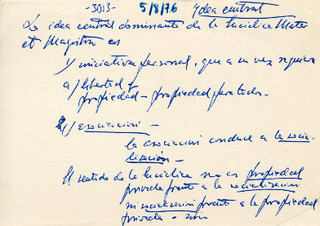 -3013- 5/8/76 Idea central
La idea central dominante de la Encíclica Mater
et Magistra es
1) iniciativa personal, que a su vez requiere
a) libertad y
propiedad - propiedad para todos.
2) asociación -
la asociación conduce a la socia-
lización -
El sentido de la Encíclica no es propiedad
privada frente a la socialización
ni socialización frente a la propiedad
privada - sino